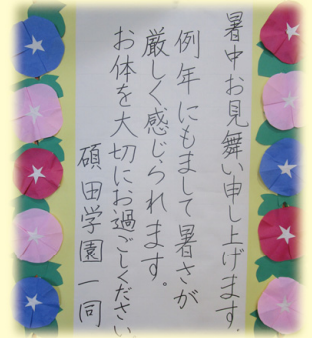 暑中お見舞い申し上げます.
例年にもまして暑さが
厳しく感じられます。
お体を大切にお過ごしください
碩田学園一同